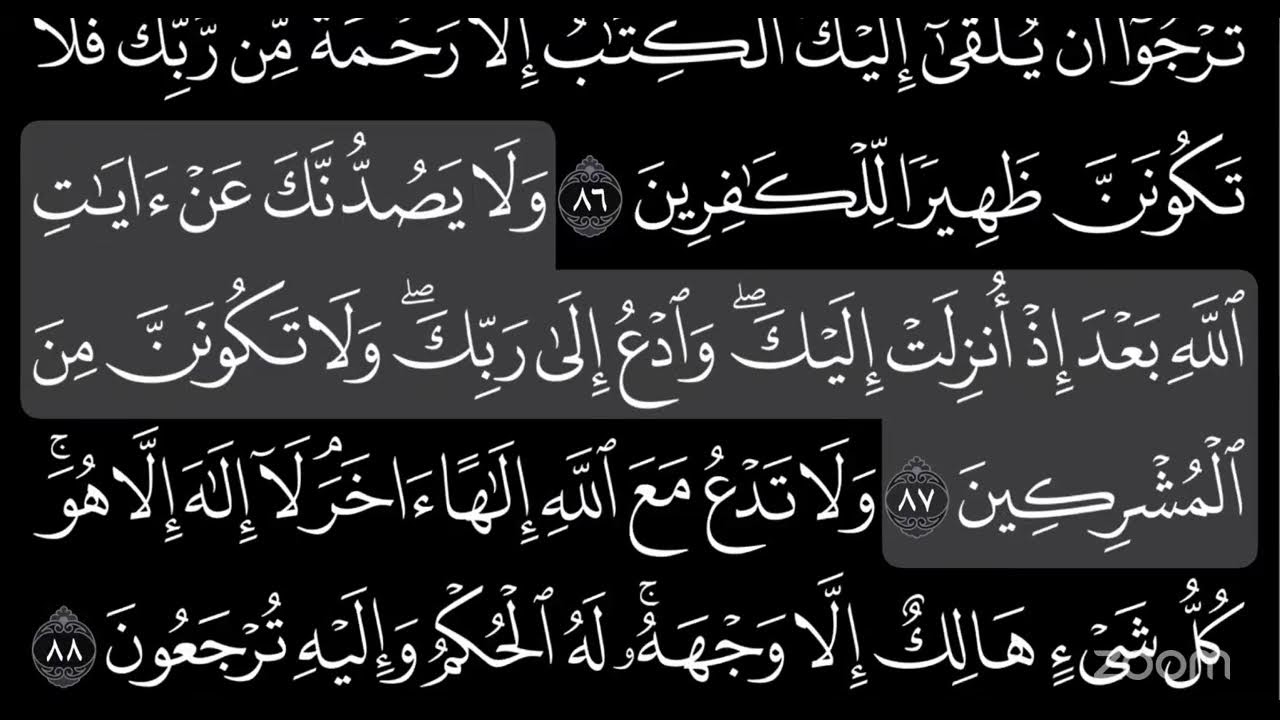 تَرْجُوٓا۟ أَن يُلْقَىٰٓ إِلَيْكَ ٱلْكِتَٰبُ إِلَّا رَحْمَةً مِّن رَّبِّكَ فَلَا
تَكُونَنَّ ظَهِيرًا لِّلْكَٰفِرِينَ ٨٦ وَلَا يَصُدُّنَّكَ عَنْ ءَايَٰتِ
ٱللَّهِ بَعْدَ إِذْ أُنزِلَتْ إِلَيْكَ ۖ وَٱدْعُ إِلَىٰ رَبِّكَ ۖ وَلَا تَكُونَنَّ مِنَ
ٱلْمُشْرِكِينَ ٨٧ وَلَا تَدْعُ مَعَ ٱللَّهِ إِلَٰهًا ءَاخَرَ ۘ لَآ إِلَٰهَ إِلَّا هُوَ ۚ
كُلُّ شَىْءٍ هَالِكٌ إِلَّا وَجْهَهُۥ ۚ لَهُ ٱلْحُكْمُ وَإِلَيْهِ تُرْجَعُونَ ٨٨
zoom